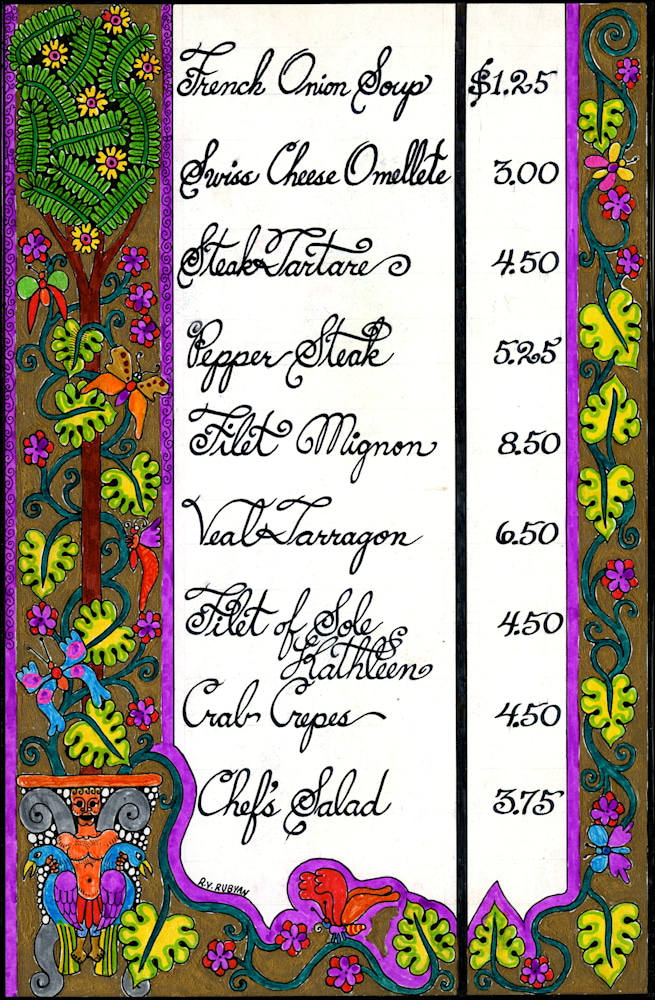 French Onion Soup $1.25
Swiss Cheese Omellete 3.00
Steak Tartare 4.50
Pepper Steak 5.25
Filet Mignon 8.50
Veal Tarragon 6.50
Filet of Sole 4.50
Kathleen
Crab Crepes 4.50
Chef's Salad 3.75
R.V. RUBYAN